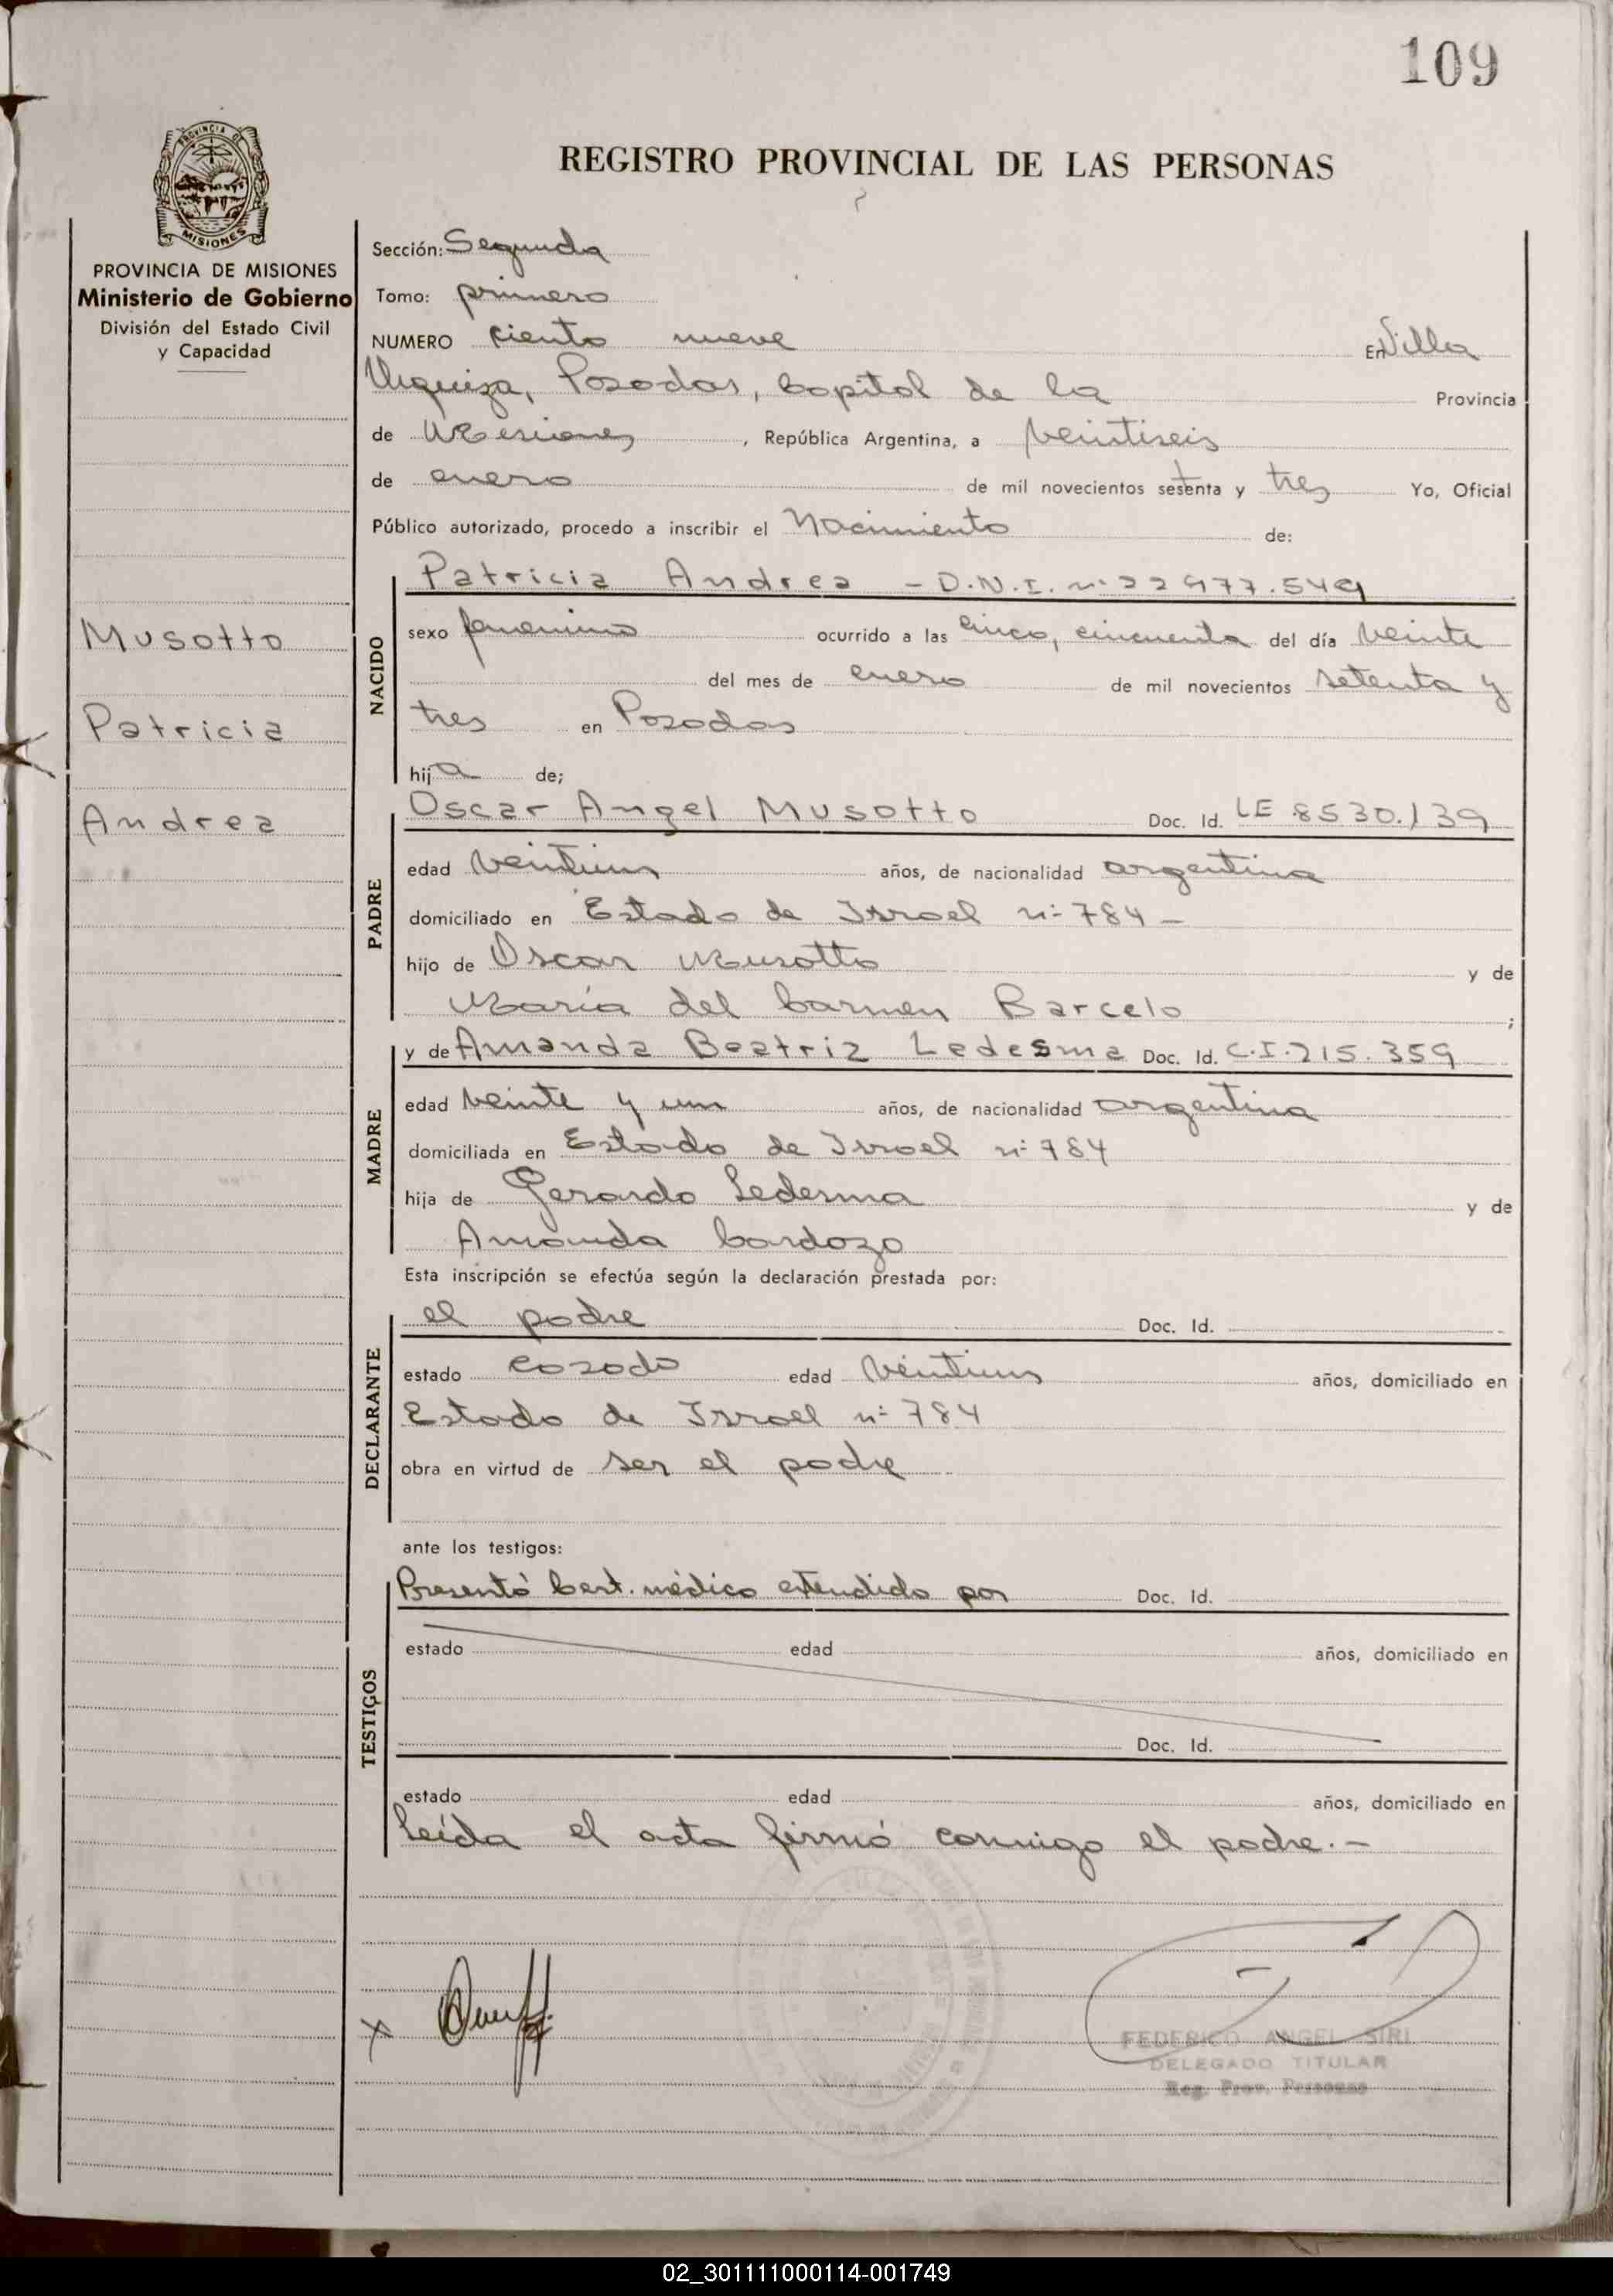 109
REGISTRO PROVINCIAL DE LAS PERSONAS
PROVINCIA DE MISIONES
MISIONES
PROVINCIA DE MISIONES
Ministerio de Gobierno
División del Estado Civil
y Capacidad
Musotto
Patricia
Andrea
Sección: Segunda
Tomo: primero
NUMERO ciento nueve En Villa
Urquiza, Posadas, Capital de la Provincia
de Misiones, República Argentina, a veintiseis
de enero de mil novecientos setenta y tres Yo, Oficial
Público autorizado, procedo a inscribir el Nacimiento de:
NACIDO
Patricia Andrea - D.N.I. nº 22977.549
sexo femenino ocurrido a las cinco, cincuenta del día veinte
del mes de enero de mil novecientos setenta y
tres en Posadas
hija de;
PADRE
Oscar Angel Musotto Doc. Id. LE 8530.139
edad veintiun años, de nacionalidad argentina
domiciliado en Estado de Israel nº 784 -
hijo de Oscar Musotto y de
María del Carmen Barcelo ;
MADRE
y de Amanda Beatriz Ledesma Doc. Id. C.I. 215.359
edad veinte y un años, de nacionalidad argentina
domiciliada en Estado de Israel nº 784
hija de Gerardo Ledesma y de
Amanda Cardozo
Esta inscripción se efectúa según la declaración prestada por:
DECLARANTE
el padre Doc. Id.
estado casado edad veintiun años, domiciliado en
Estado de Israel nº 784
obra en virtud de ser el padre
ante los testigos:
TESTIGOS
Presentó Cert. médico extendido por Doc. Id.
estado edad años, domiciliado en
Doc. Id.
estado edad años, domiciliado en
Leída el acta firmó conmigo el padre. -
X
FEDERICO ANGEL SIRI
DELEGADO TITULAR
Reg. Prov. Personas
02_301111000114-001749